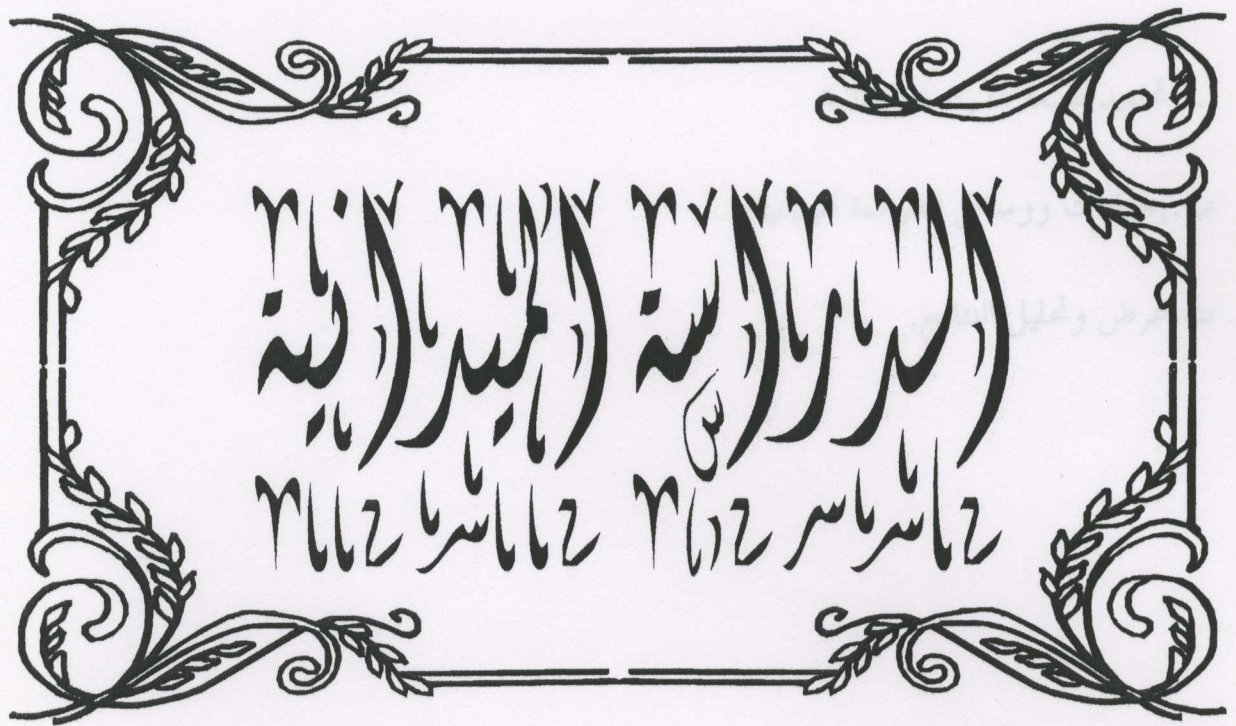 الدراسة الميدانية